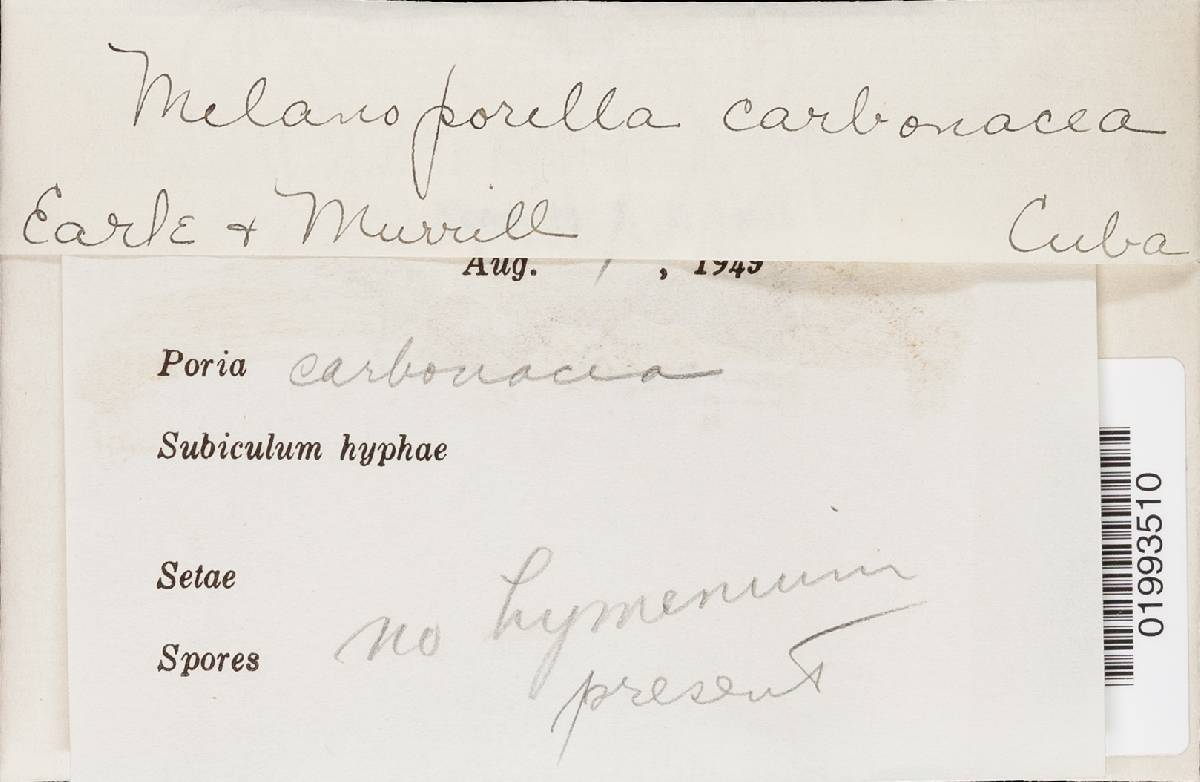 Melanoporella carbonacea
Earle & Murrill Cuba
Aug. , 1949
Poria carbonacea
Subiculum hyphae
Setae
Spores
no hymenium
present
01993510